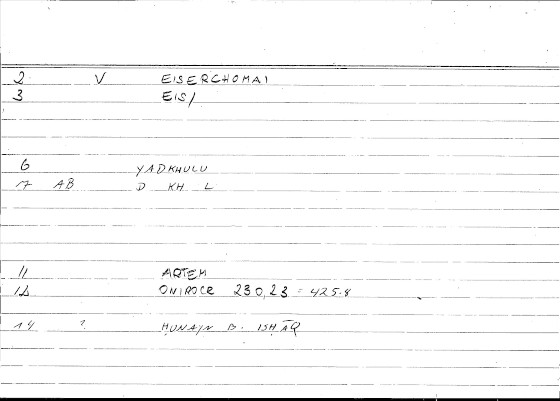 2 V EISERCHOMAI
3 EIS/
6 YADKHULU
17 AB D KH L
11 ARTEM
12 ONIROCR 230,23 = 425.8
14 1. ḤUNAYN B. ISḤĀQ